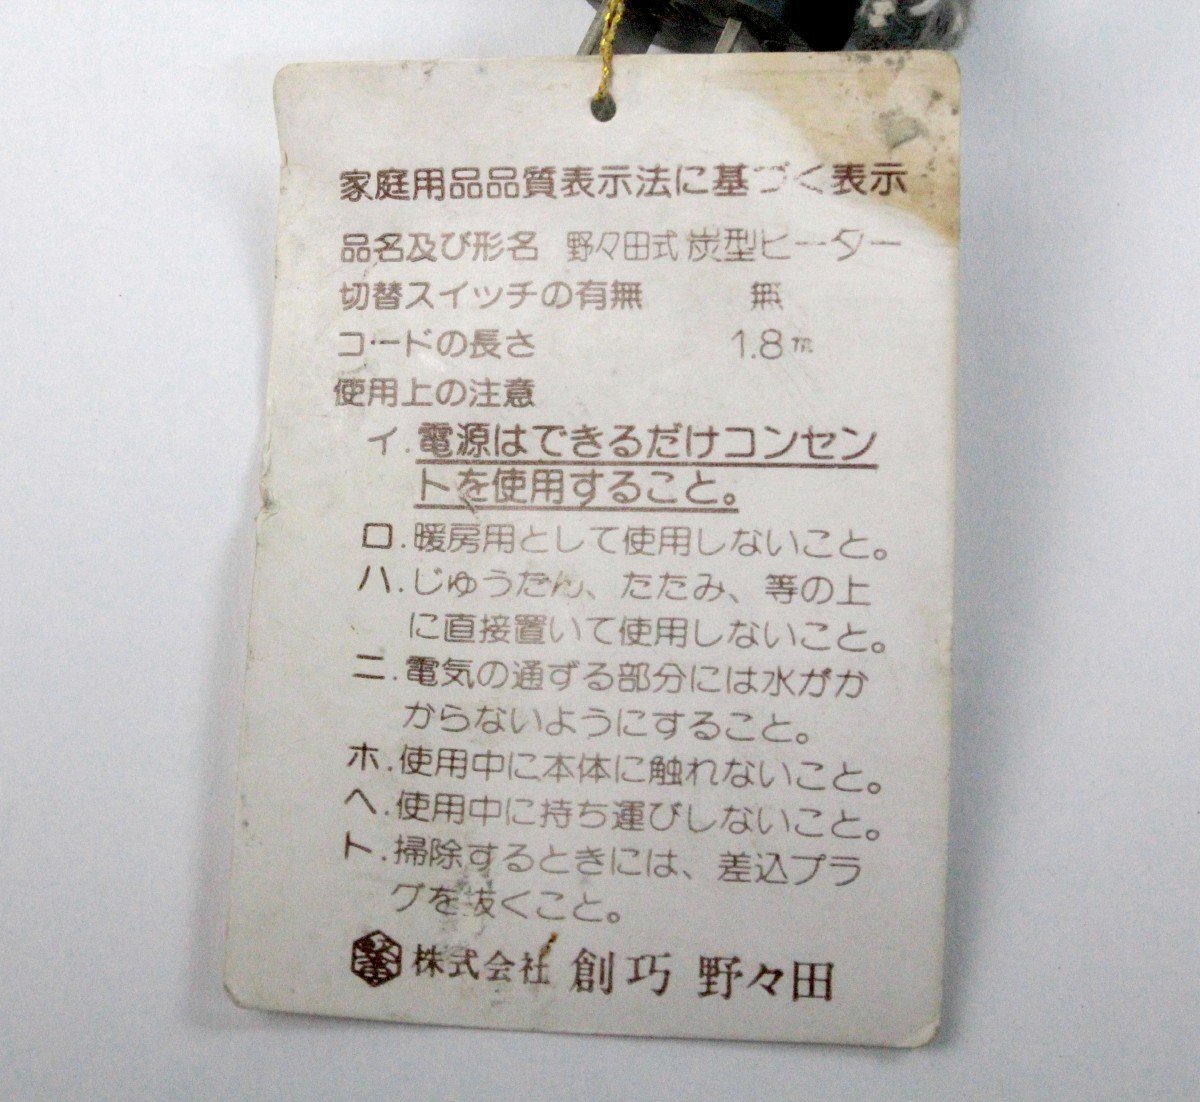 家庭用品品質表示法に基づく表示
品名及び形名 野々田式炭型ヒーター
切替スイッチの有無 無
コードの長さ 1.8m
使用上の注意
イ.電源はできるだけコンセン
トを使用すること。
ロ.暖房用として使用しないこと。
ハ.じゅうたん、たたみ、等の上
に直接置いて使用しないこと。
ニ.電気の通ずる部分には水がか
からないようにすること。
ホ.使用中に本体に触れないこと。
ヘ.使用中に持ち運びしないこと。
ト.掃除するときには、差込プラ
グを抜くこと。
株式会社 創巧 野々田